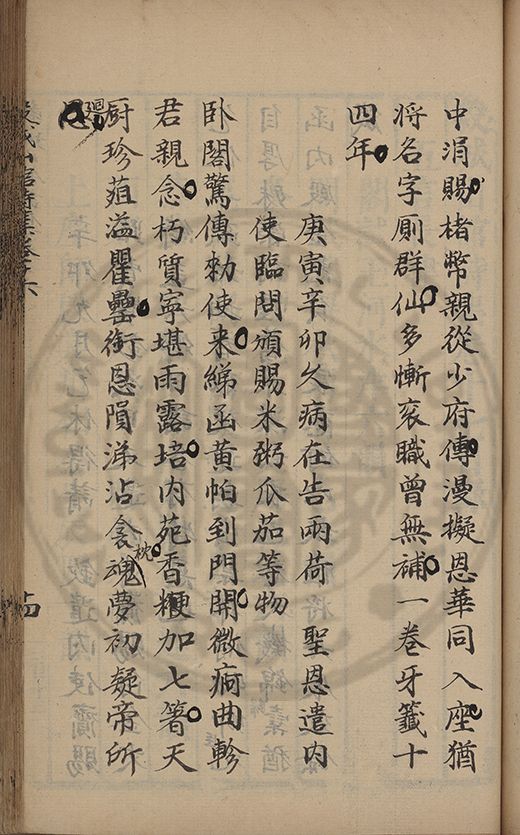 中涓賜楮幣親從少府傳漫擬恩華同入座猶
將名字厠群仙多慚衮職曾無補一卷牙籤十
四年
庚寅辛卯久病在告兩荷 聖恩遣内
使臨問頒賜米粥瓜茄等物
卧閣驚傳勅使来綈函黄帕到門開微痾曲軫
君親念朽質寧堪雨露培内苑香粳加七箸天
厨珍菹溢瞿罍銜恩隕涕沾衾枕魂夢初疑帝所
迴